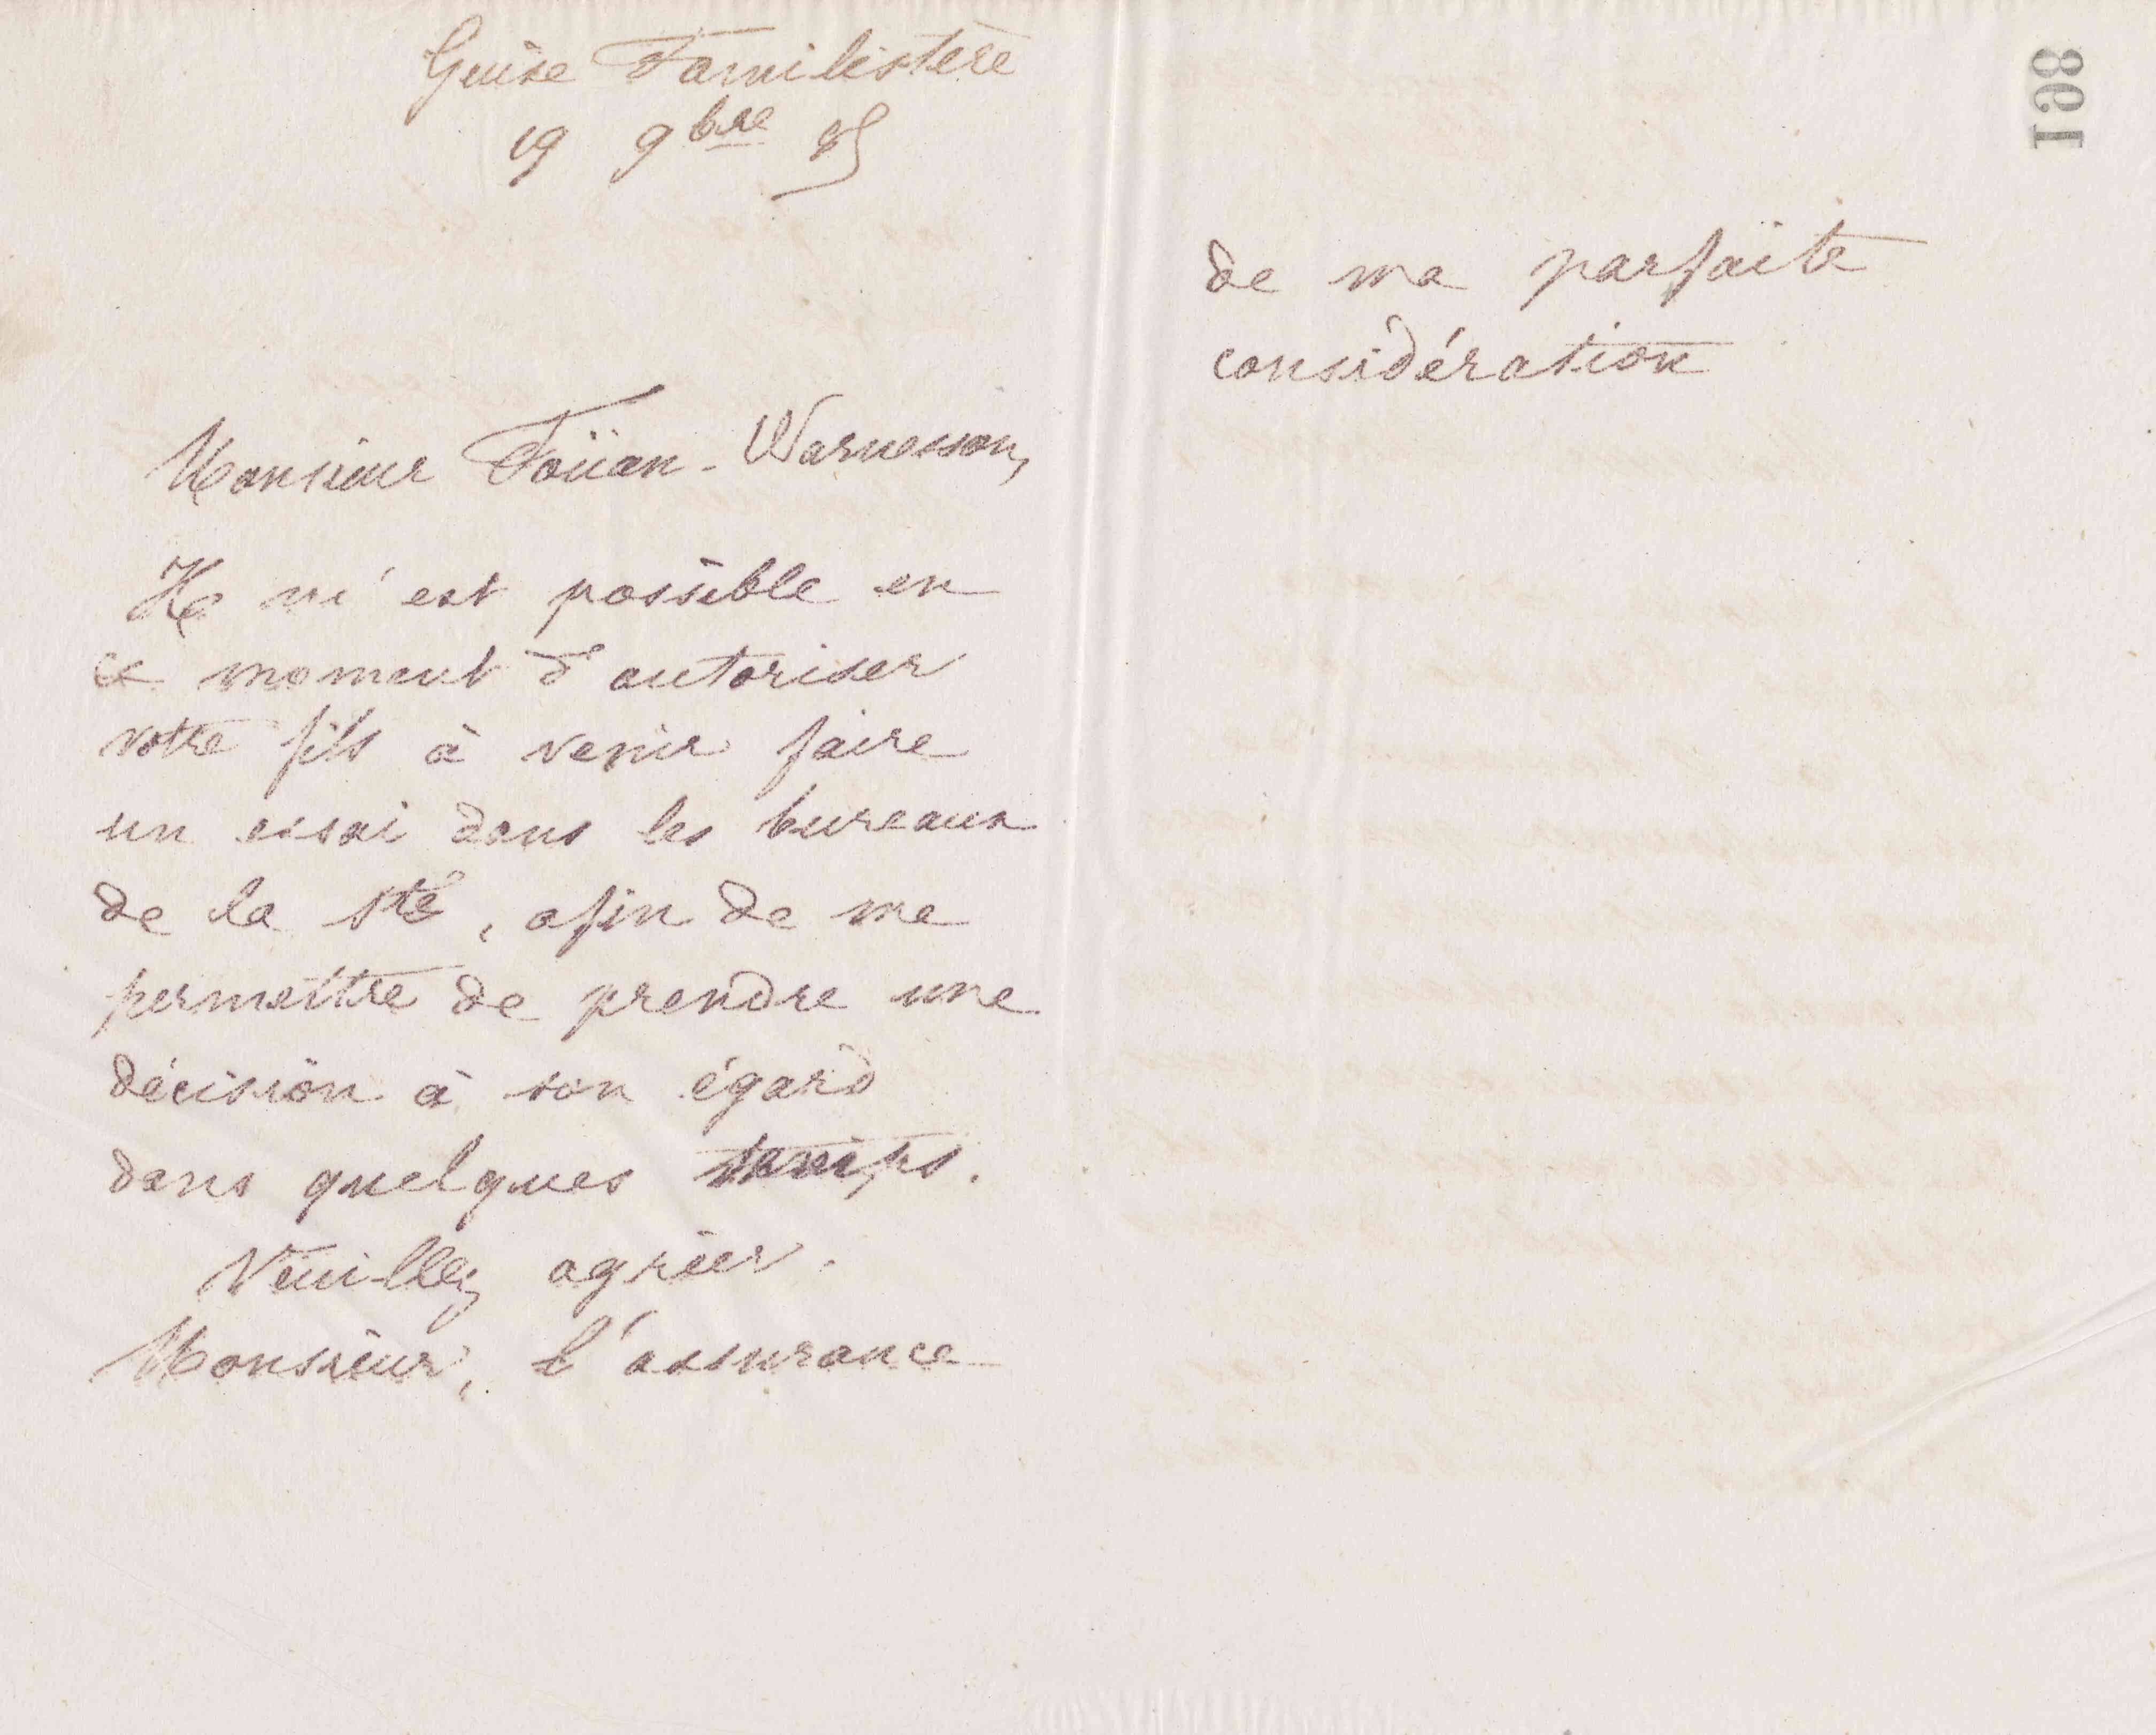 Guise Familistère
19 9bre 85
Monsieur Foüan-Warnesson,
Il m'est possible en
ce moment d'autoriser
votre fils à venir faire
un essai dans les bureaux
de la Sté, afin de me
permettre de prendre une
décision à son égard
dans quelques temps.
Veuillez agréer,
Monsieur, l'assurance
198
de ma parfaite
considération